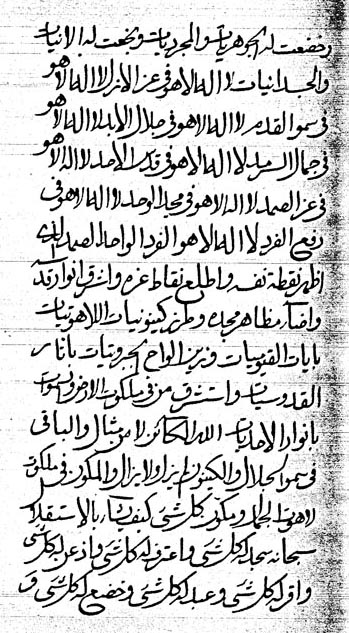 وخضعت له الجوهريات والمجرديات وبخعت له الانيات
لا اله الا هو فى عز الازل لا اله الا هو
فى سمو القدم لا اله الا هو فى جلال الابد لا اله الا هو
فى جمال السرمد لا اله الا هو فى الاحد لا اله الا هو
فى عز الصمد لا اله الا هو فى مجد الوحد لا اله الا هو فى
رفع الفرد لا اله الا هو الفرد الواحد الصمد الذى
اظهر نقطة نفسه واطلع نقاط عزه واشرق انوار
واضاء مظاهر مجده وطرز كينونيات اللاهوتيات
بايات القيوميات وزين الواح الجبروتيات باثار
القدوسيات واستشرق من فى ملكوت الارض
بانوار الاحديات الله الكائن لا من مثال والباقى
فى سمو الجلال والكينون لم يزل ولا يزال والمكون فى ملكوت
لاهوت الجمال ومكون كل شىء كيف يشاء بالاستقلال
سبحانه سجد له كل شىء واعترف له كل شىء واذعن له كل شىء
واقر له كل شىء وعبد له كل شىء وخضع له كل شىء و